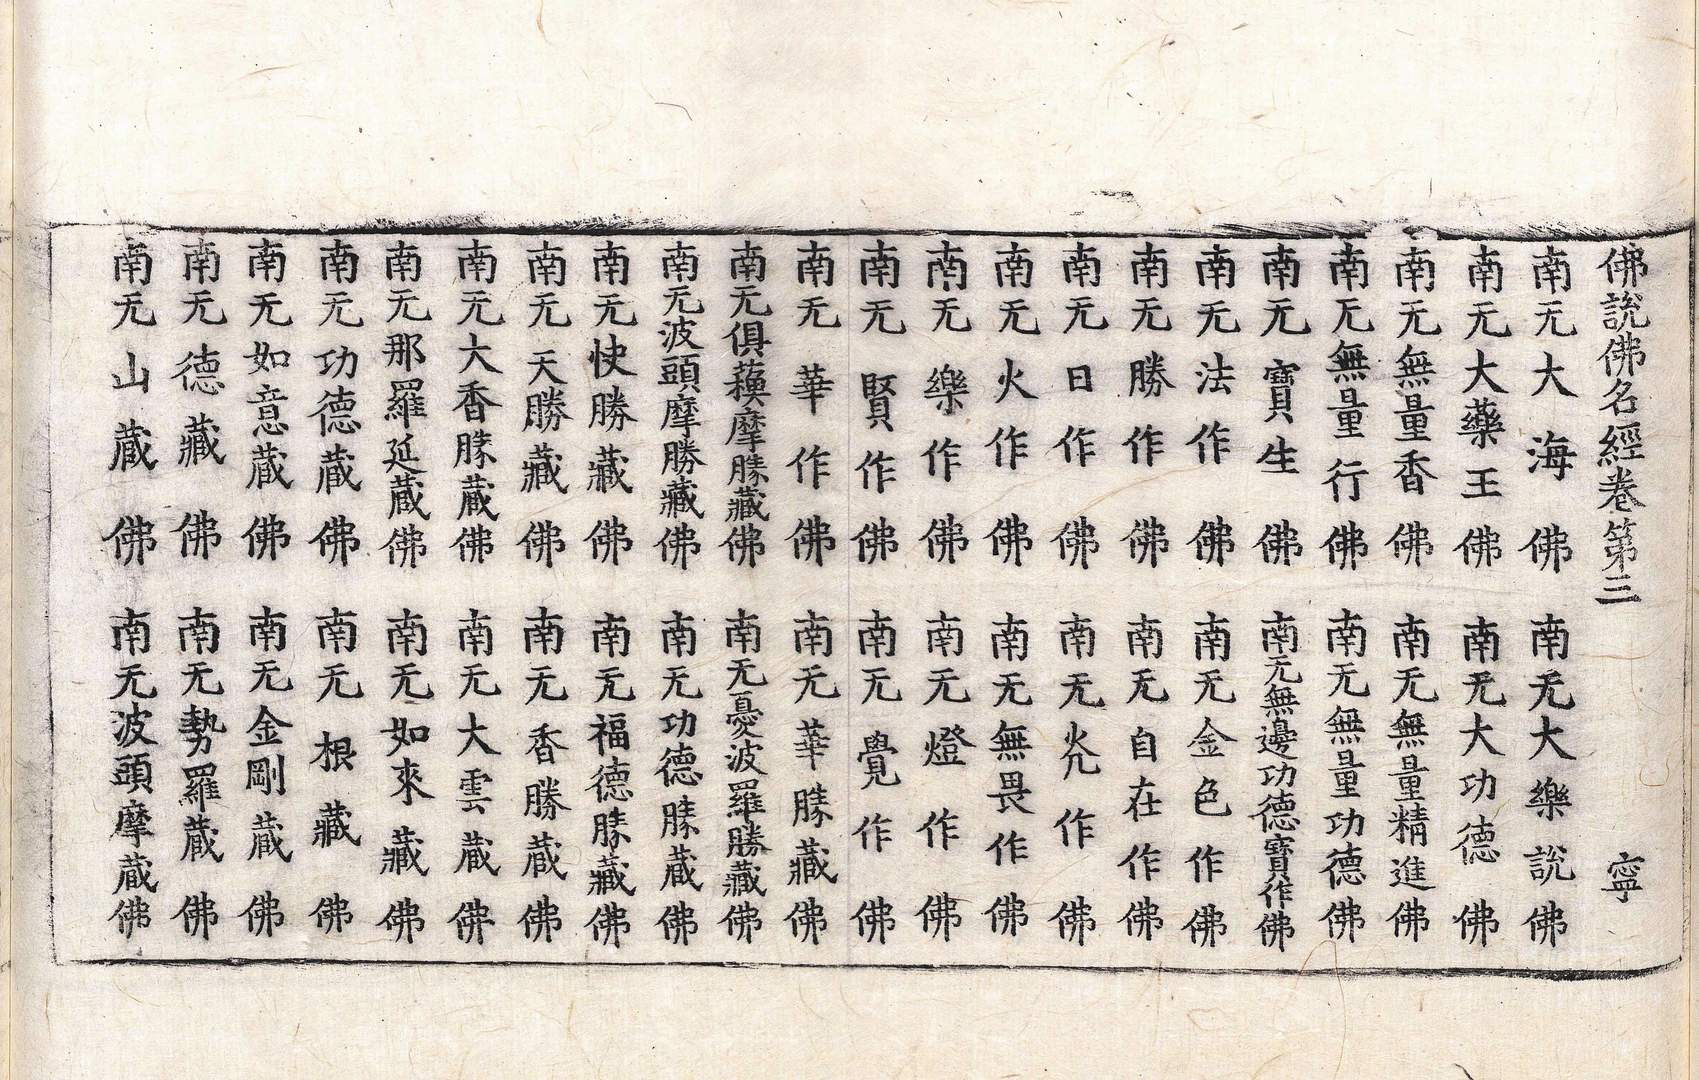 佛說佛名經卷第三 寧
南无大海佛 南无大樂說佛
南无大藥王佛 南无大功德佛
南无無量香佛 南无無量精進佛
南无無量行佛 南无無量功德佛
南无寶生佛 南无無邊功德寶作佛
南无法作佛 南无金色作佛
南无勝作佛 南无自在作佛
南无日作佛 南无炗作佛
南无火作佛 南无無畏作佛
南无樂作佛 南无燈作佛
南无賢作佛 南无覺作佛
南无華作佛 南无華勝藏佛
南无俱蘓摩勝藏佛 南无憂波羅勝藏佛
南无波頭摩勝藏佛 南无功德勝藏佛
南无快勝藏佛 南无福德勝藏佛
南无天勝藏佛 南无香勝藏佛
南无大香勝藏佛 南无大雲藏佛
南无那羅延藏佛 南无如來藏佛
南无功德藏佛 南无根藏佛
南无如意藏佛 南无金剛藏佛
南无德藏佛 南无勢羅藏佛
南无山藏佛 南无波頭摩藏佛